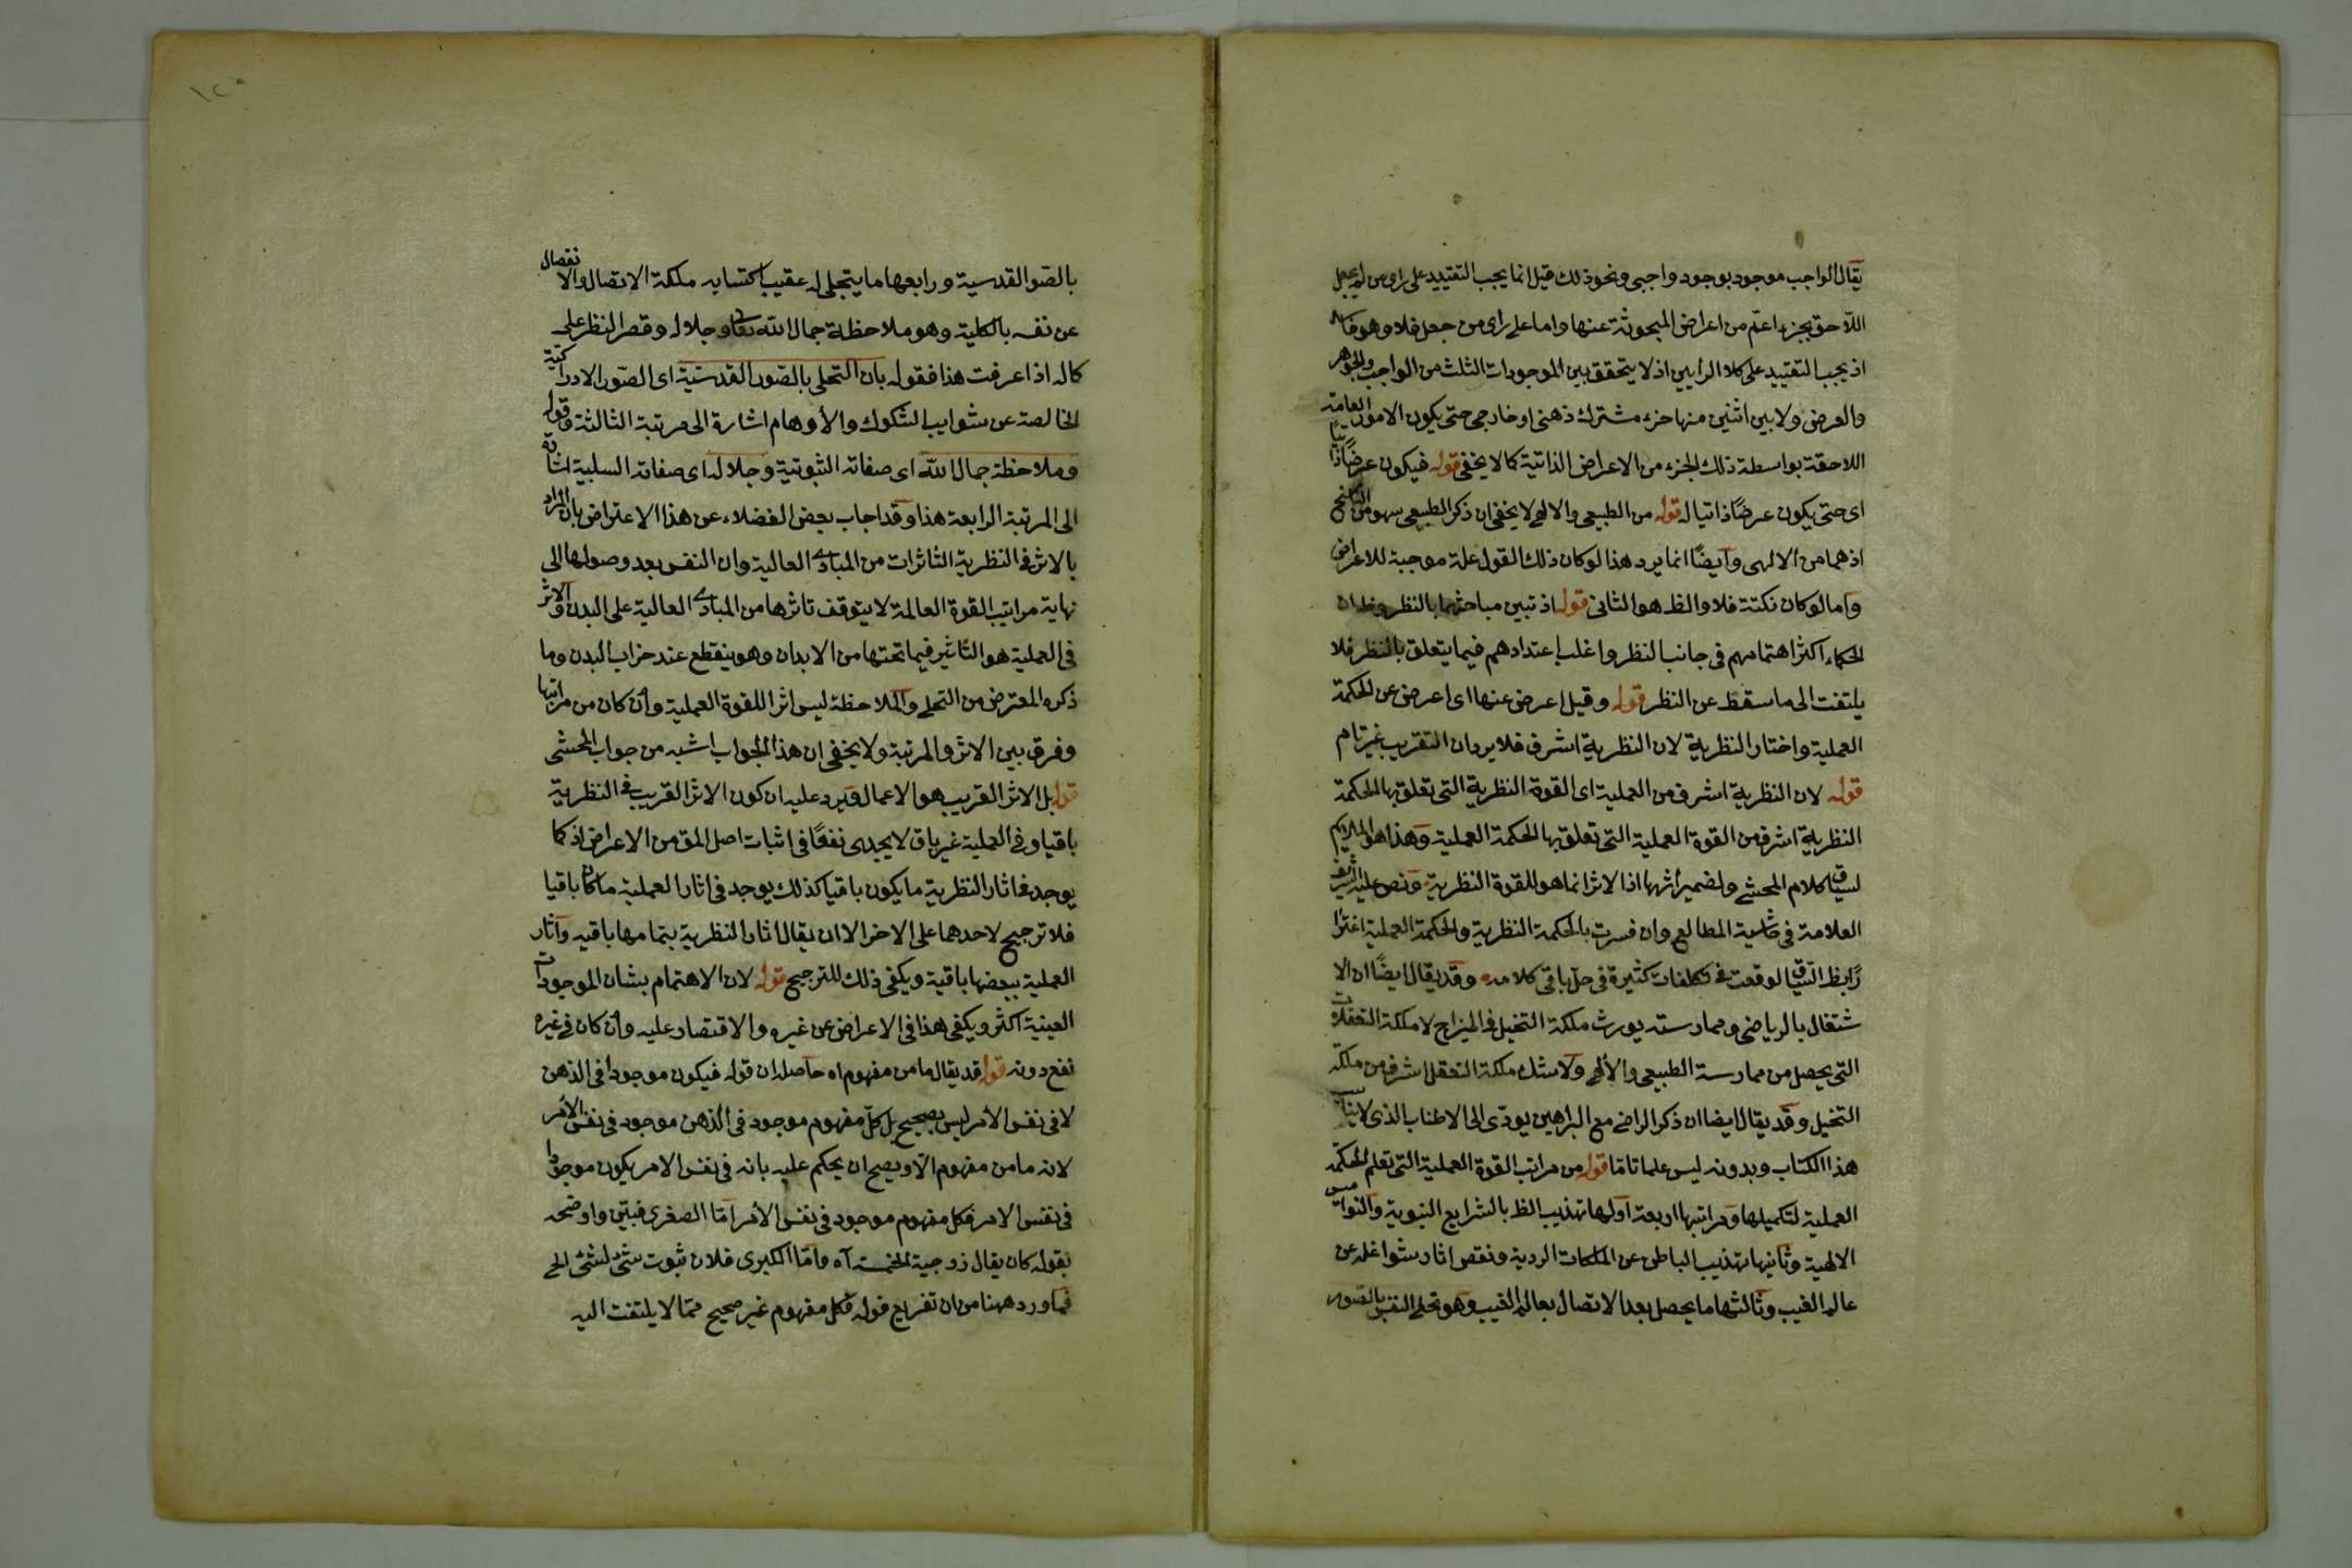 يقال الواجب موجود بوجود واجبى ونحو ذلك قيل انما يجب التقييد على راى من لم يجعل
اللاحق بجزء اعم من اعراض المبحوثة عنها واما على راى من جعل فلا وهو فاسد
اذ يجب التقييد على كلا الرأيين اذ لا يتحقق بين الموجودات الثلث من الواجب والجوهر
والعرض ولا بين اثنين منها جزء مشترك ذهنى او خارجى حتى يكون الامور العامة
اللاحقة بواسطة ذلك الجزء من الاعراض الذاتية كما لا يخفى قوله فيكون عرضًا ذاتيًا
اى حتى يكون عرضًا ذاتيا له قوله من الطبيعى والالهى لا يخفى ان ذكر الطبيعى سهو من الناسخ
اذ هما من الالهى وايضًا انما يرد هذا لو كان ذلك القول علة موجبة للاعراض
واما لو كان نكتة فلا والظ هو الثانى قوله اذ تبين مباحثهما بالنظر وظ ان
الحكماء اكثر اهتمامهم فى جانب النظر واغلب اعتدادهم فيما يتعلق بالنظر فلا
يلتفت الى ما سقط عن النظر قوله وقيل اعرض عنها اى اعرض عن الحكمة
العملية واختار النظرية لان النظرية اشرف فلا يرد ان التقريب غير تام
قوله لان النظرية اشرف من العملية اى القوة النظرية التى تعلق بها الحكمة
النظرية اشرف من القوة العملية التى تعلق بها الحكمة العملية وهذا هو الملايم
لسياق كلام المحشى ولضمير اثرها اذ الاثر انما هو للقوة النظرية ونص عليه الشريف
العلامة فى حاشية المطالع وان فسرت بالحكمة النظرية والحكمة العملية اغترا
رًا بظ السياق لوقعت فى تكلفات كثيرة فى حل باقى كلامه وقد يقال ايضًا ان الا
شتغال بالرياضى وممارسته يورث ملكة التخيل فى المزاج لا ملكة التعقلات
التى يحصل من ممارسة الطبيعى والالهى ولا شك ملكة التعقل اشرف من ملكة
التخيل وقد يقال ايضا ان ذكر الراضى مع البراهين يودى الى الاطناب الذى لا يناسب
هذا الكتاب وبدونه ليس علما تاما قوله من مراتب القوة العملية التى تعلم الحكمة
العملية لتكميلها ومراتبها اربعة اولها تهذيب الظ بالشرايع النبوية والنواميس
الالهية وثانيها تهذيب الباطن عن الملكات الردية ونقص اثار شواغله عن
عالم الغيب وثالثها ما يحصل بعد الاتصال بعالم الغيب وهو تحلى النفس بالصور
بالصور القدسية ورابعها ما يتجلى له عقيب اكتسابه ملكة الاتصال والانفصال
عن نفسه بالكلية وهو ملاحظة جمال الله تعالى وجلاله وقصر النظر على
كماله اذا عرفت هذا فقوله بان التحلى بالصور القدسية اى الصور الادراكية
الخالصة عن شوايب الشكوك والأوهام اشارة الى مرتبة الثالثة وقوله
وملاحظة جمال الله اى صفاته الثبوتية وجلاله اى صفاته السلبية اشارة
الى المرتبة الرابعة هذا وقد اجاب بعض الفضلاء عن هذا الاعتراض بان المراد
بالاثر فى النظرية التاثرات من المبادى العالية وان النفس بعد وصولها الى
نهاية مراتب القوة العالمة لا يتوقف تاثرها من المبادى العالية على البدن والاثر
فى العملية هو التأثير فيما تحتها من الابدان وهو ينقطع عند خراب البدن وما
ذكره المعترض من التحلى والملاحظة ليس اثرا للقوة العملية وان كان من مراتبها
وفرق بين الاثر والمرتبة ولا يخفى ان هذا الجواب اشبه من جواب المحشى
قوله بل الاثر القريب هو الاعمال ويرد عليه ان كون الاثر القريب فى النظرية
باقيا وفى العملية غير باق لا يجدى نفعًا فى اثبات اصل المق من الاعراض اذ كما
يوجد فى اثار النظرية ما يكون باقيا كذلك يوجد فى اثار العملية ما كان باقيا
فلا ترجيح لاحدهما على الاخر الا ان يقال اثار النظرية بتمامها باقيه وآثار
العملية ببعضها باقية ويكفى ذلك للترجيح قوله لان الاهتمام بشان الموجودات
العينية اكثر ويكفى هذا فى الاعراض عن غيره والاقتصار عليه وان كان فى غيره
نفع دونه قوله قد يقال ما من مفهوم اه حاصله ان قوله فيكون موجودا فى الذهن
لا فى نفس الأمر ليس بصحيح بل كل مفهوم موجود فى الذهن موجود فى نفس الأمر
لانه ما من مفهوم الا ويصح ان يحكم عليه بانه فى نفس الامر يكون موجودا
فى نفس الامر فكل مفهوم موجود فى نفس الأمر امّا الصغرى فبيّن واوضحه
بقوله كان يقال زوجية الخمسة آه وامّا الكبرى فلان ثبوت شئ لشئ الخ
فما ورد ههنا من ان تفريع قوله فكل مفهوم غير صحيح ممّا لا يلتفت اليه